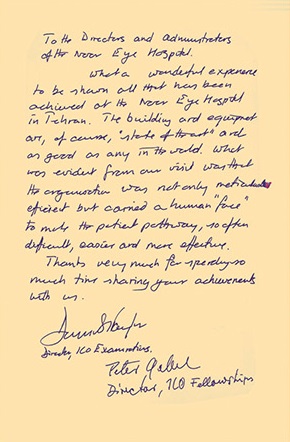 To the Directors and administrators
of the Noor Eye Hospital.
What a wonderful experience
to be shown all that has been
achieved at the Noor Eye Hospital
in Tehran. The building and equipment
are, of course, "state of the art" and
as good as any in the world. What
was evident from our visit was that
the organisation was not only meticulously
efficient but carried a human "face"
to make the patient pathway, so often
difficult, easier and more effective.
Thanks very much for spending so
much time sharing your achievements
with us.
Director, ICO Examinations.
Peter
Director, ICO Fellowships